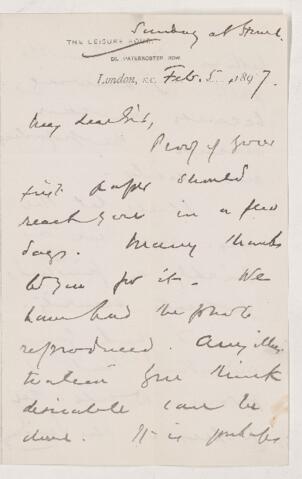 Sunday at Home.
THE LEISURE HOUR,
56, PATERNOSTER ROW
London, E.C. Feb. 5. 1897.
My dear Sir,
Proof of your
first paper should
reach you in a few
days. Many thanks
to you for it. We
have had the photo
reproduced. Any illus-
tration you think
desirable can be
done. It is perhaps